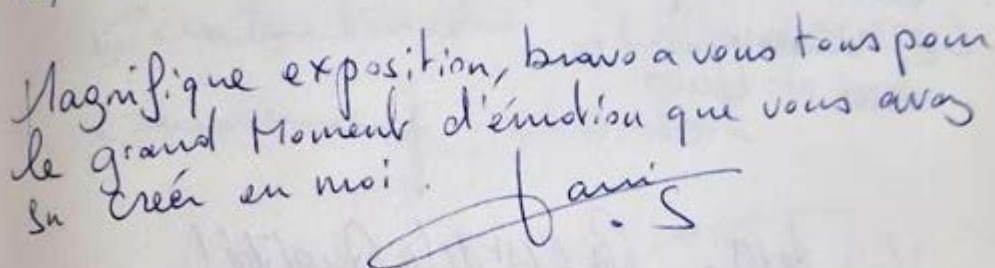 Magnifique exposition, bravo a vous tous pour
le grand Moment d'émotion que vous avez
su creér en moi.